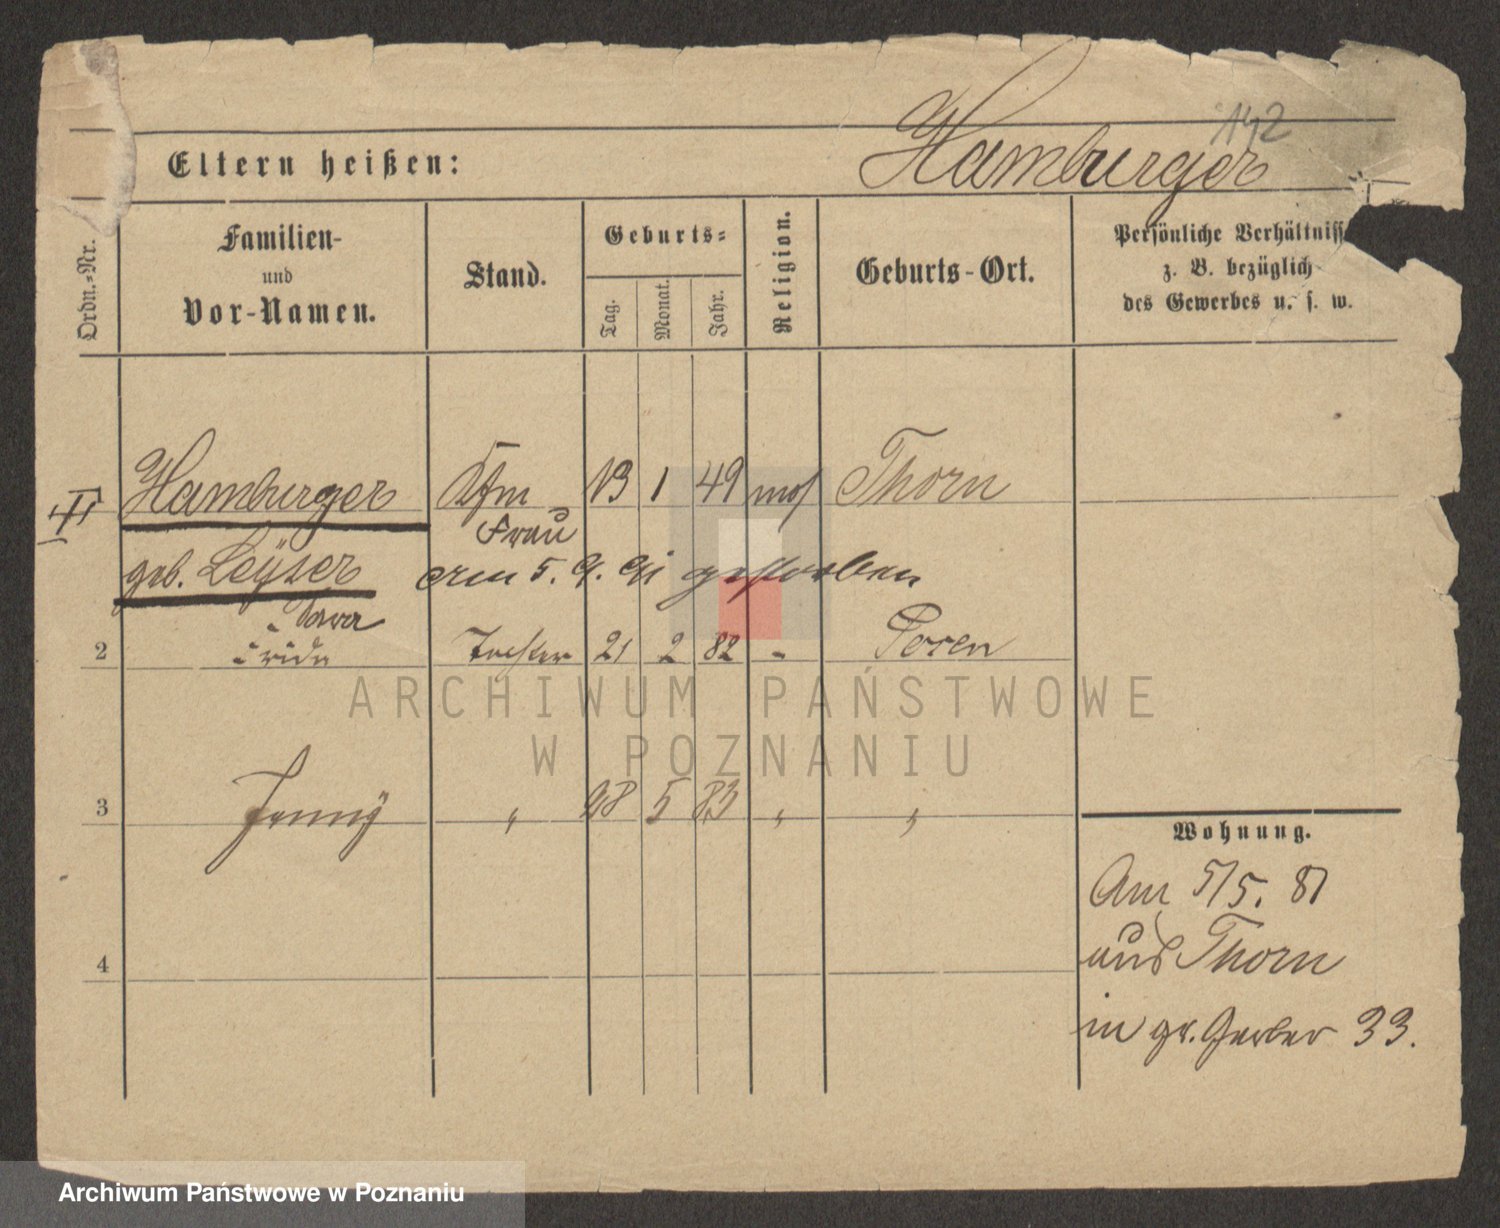 142
Eltern heißen: Hamburger
Ordn.-Nr.
Familien-
und
Vor-Namen.
Stand.
Geburts-
Tag.
Monat.
Jahr.
Religion.
Geburts-Ort.
Persönliche Verhältniss
z. B. bezüglich
des Gewerbes u. s. w.
Hamburger Kfm 13 1 49 mos Thorn
Frau
geb. Leÿser am 5. 9. 91 gestorben
2 Frida Tochter 21 2 82 " Posen
3 Jenny " 28 5 83 " "
4
Wohnung.
Am 5/5. 81
aus Thorn
in gr. Gerber 33.
ARCHIWUM PAŃSTWOWE
W POZNANIU
Archiwum Państwowe w Poznaniu